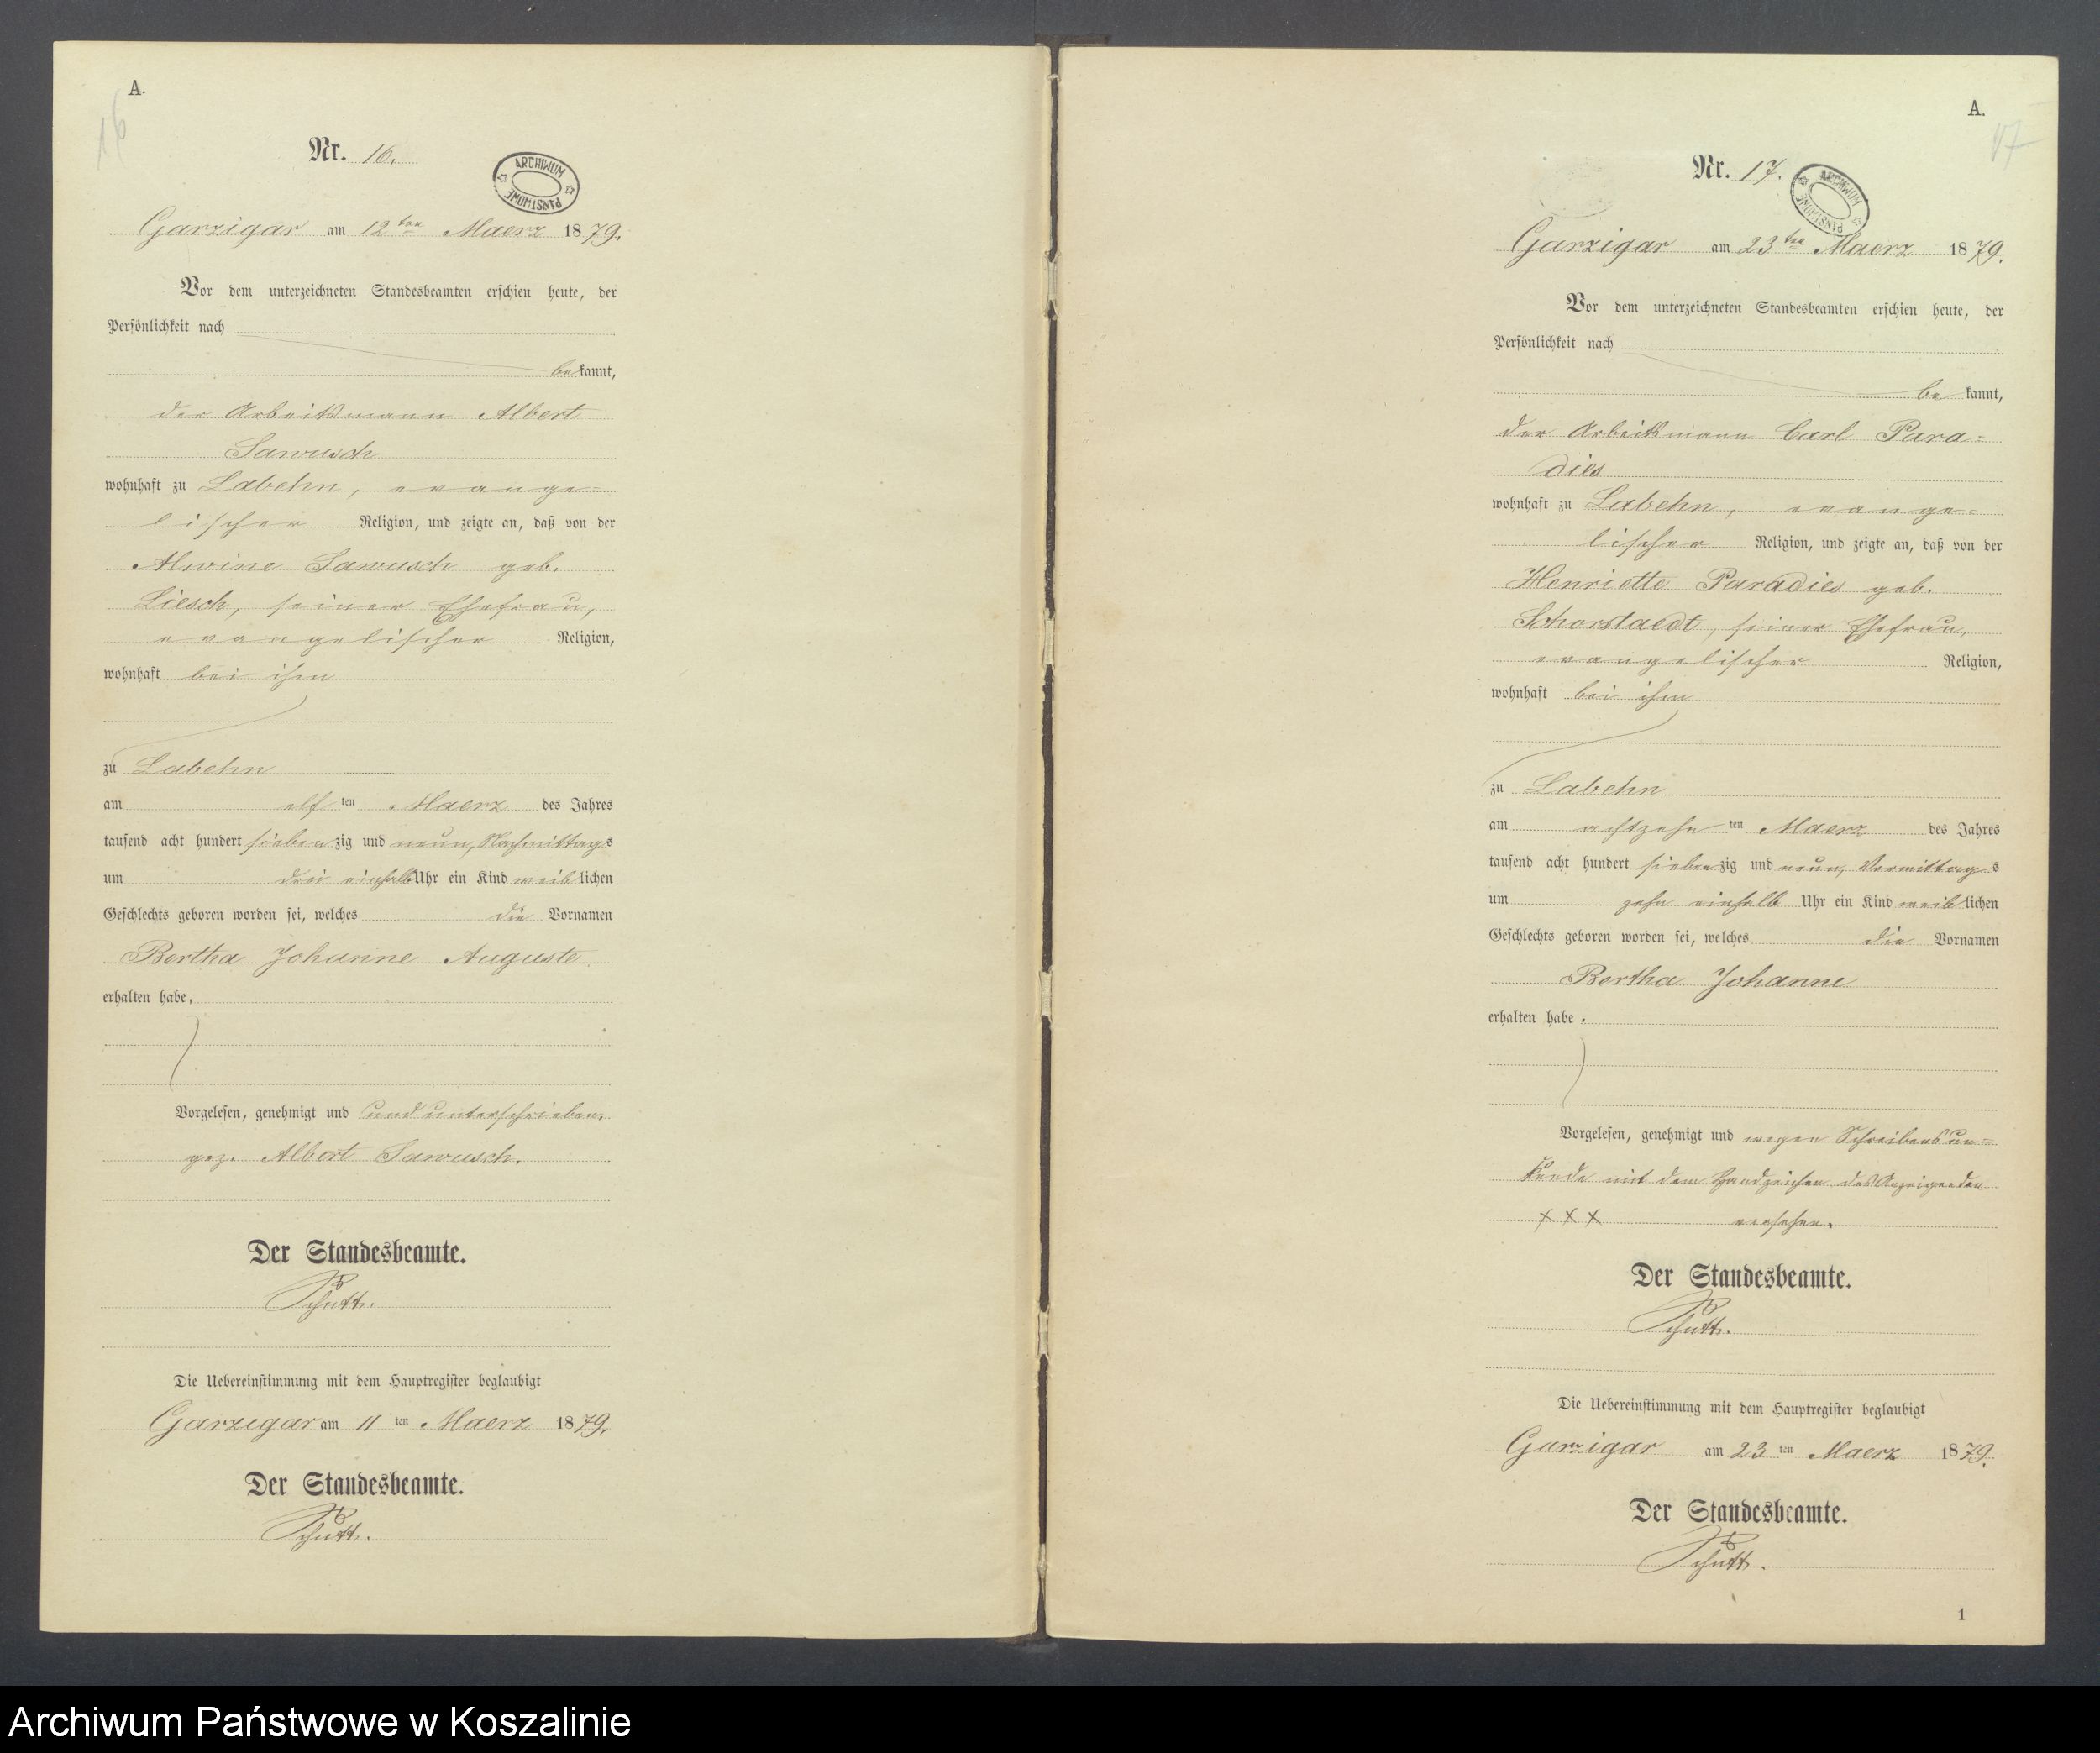 A.
16
Nr. 16.
ARCHIWUM PAŃSTWOWE
Garzigar am 12ten Maerz 1879.
Vor dem unterzeichneten Standesbeamten erschien heute, der
Persönlichkeit nach
bekannt,
der Arbeitsmann Albert
Sawusch
wohnhaft zu Labehn, evange=
lischer Religion, und zeigte an, daß von der
Alwine Sawusch geb.
Liesch, seiner Ehefrau,
evangelischer Religion,
wohnhaft bei ihm
zu Labehn
am elf ten Maerz des Jahres
tausend acht hundert siebenzig und neun, Nachmittags
um drei einhalb Uhr ein Kind weiblichen
Geschlechts geboren worden sei, welches die Vornamen
Bertha Johanne Auguste
erhalten habe.
Vorgelesen, genehmigt und und unterschrieben,
gez. Albert Sawusch.
Der Standesbeamte.
Schütt.
Die Uebereinstimmung mit dem Hauptregister beglaubigt
Garzigar am 11 ten Maerz 1879.
Der Standesbeamte.
Schütt.
A.
17
Nr. 17.
ARCHIWUM PAŃSTWOWE
Garzigar am 23ten Maerz 1879.
Vor dem unterzeichneten Standesbeamten erschien heute, der
Persönlichkeit nach
bekannt,
der Arbeitsmann Carl Para=
dies
wohnhaft zu Labehn, evange=
lischer Religion, und zeigte an, daß von der
Henriette Paradies geb.
Schorstaedt, seiner Ehefrau,
evangelischer Religion,
wohnhaft bei ihm
zu Labehn
am achtzehn ten Maerz des Jahres
tausend acht hundert siebenzig und neun, Vormittags
um zehn einhalb Uhr ein Kind weiblichen
Geschlechts geboren worden sei, welches die Vornamen
Bertha Johanne
erhalten habe.
Vorgelesen, genehmigt und wegen Schreibensun=
kunde mit dem Handzeichen des Anzeigenden
XXX versehen.
Der Standesbeamte.
Schütt.
Die Uebereinstimmung mit dem Hauptregister beglaubigt
Garzigar am 23 ten Maerz 1879.
Der Standesbeamte.
Schütt.
1
Archiwum Państwowe w Koszalinie